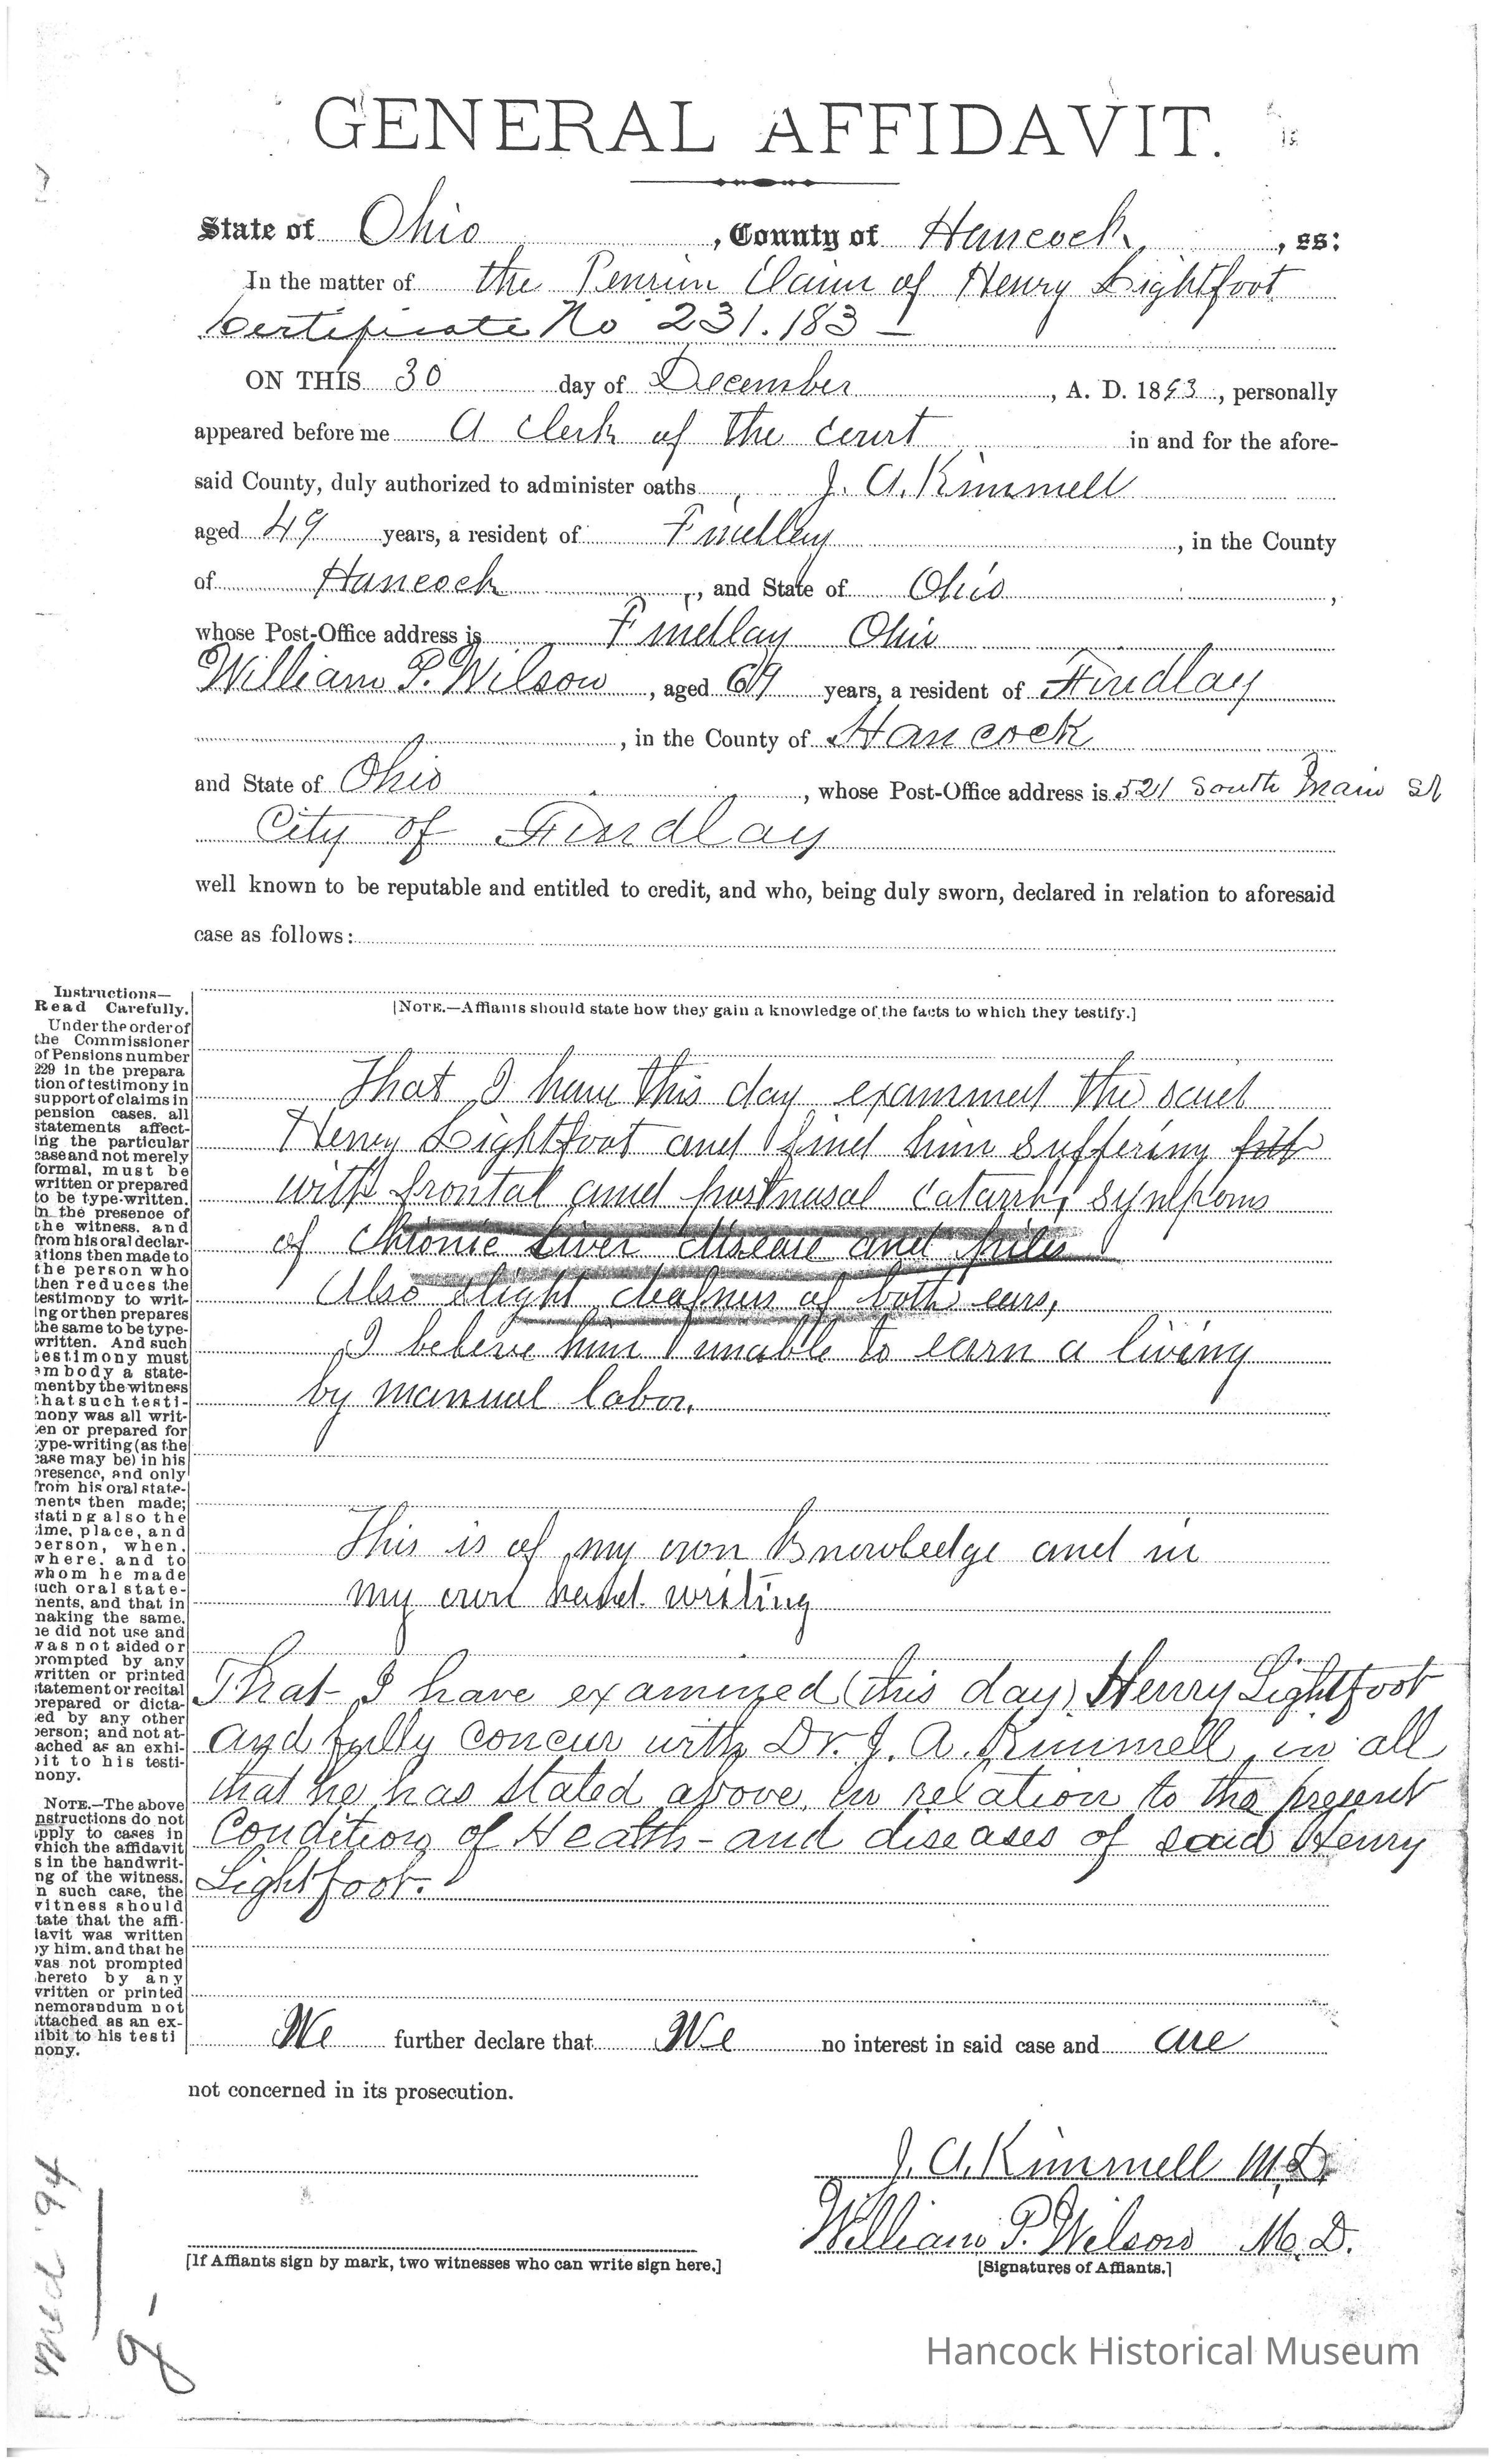 GENERAL AFFIDAVIT.
State of Ohio, County of Hancock, ss:
In the matter of the Pension Claim of Henry Lightfoot
Certificate No 231.183 —
ON THIS 30 day of December, A. D. 1893, personally
appeared before me A Clerk of the Court in and for the afore-
said County, duly authorized to administer oaths, J. A. Kimmell
aged 49 years, a resident of Findlay, in the County
of Hancock, and State of Ohio,
whose Post-Office address is Findlay Ohio
William P. Wilson, aged 69 years, a resident of Findlay
, in the County of Hancock
and State of Ohio, whose Post-Office address is 521 South Main St
City of Findlay
well known to be reputable and entitled to credit, and who, being duly sworn, declared in relation to aforesaid
case as follows:
[NOTE.—Affiants should state how they gain a knowledge of the facts to which they testify.]
That I have this day examined the said
Henry Lightfoot and find him suffering
with frontal and postnasal catarrh, symptoms
of Chronic Liver disease and piles
Also slight deafness of both ears,
I believe him unable to earn a living
by manual labor.
This is of my own Knowledge and in
my own hand writing
That I have examined (this day) Henry Lightfoot
and fully concur with Dr. J. A. Kimmell in all
that he has stated above in relation to the present
Condition of Health - and diseases of said Henry
Lightfoot.
We further declare that We no interest in said case and are
not concerned in its prosecution.
J. A. Kimmell M.D.
William P. Wilson M.D.
[If Affiants sign by mark, two witnesses who can write sign here.]
[Signatures of Affiants.]
Instructions—
Read Carefully.
Under the order of
the Commissioner
of Pensions number
229 in the prepara
tion of testimony in
support of claims in
pension cases. all
statements affect-
ing the particular
case and not merely
formal, must be
written or prepared
to be type-written.
in the presence of
the witness. and
from his oral declar-
ations then made to
the person who
then reduces the
testimony to writ-
ing or then prepares
the same to be type-
written. And such
testimony must
embody a state-
ment by the witness
that such testi-
mony was all writ-
ten or prepared for
type-writing (as the
case may be) in his
presence, and only
from his oral state-
ments then made;
stating also the
time, place, and
person, when.
where. and to
whom he made
such oral state-
ments, and that in
making the same.
he did not use and
was not aided or
prompted by any
written or printed
statement or recital
prepared or dicta-
ted by any other
person; and not at-
tached as an exhi-
bit to his testi-
mony.
NOTE.—The above
instructions do not
apply to cases in
which the affidavit
is in the handwrit-
ing of the witness.
In such case, the
witness should
state that the affi-
davit was written
by him, and that he
was not prompted
thereto by any
written or printed
memorandum not
attached as an ex-
hibit to his testi
mony.
Med '94
Hancock Historical Museum